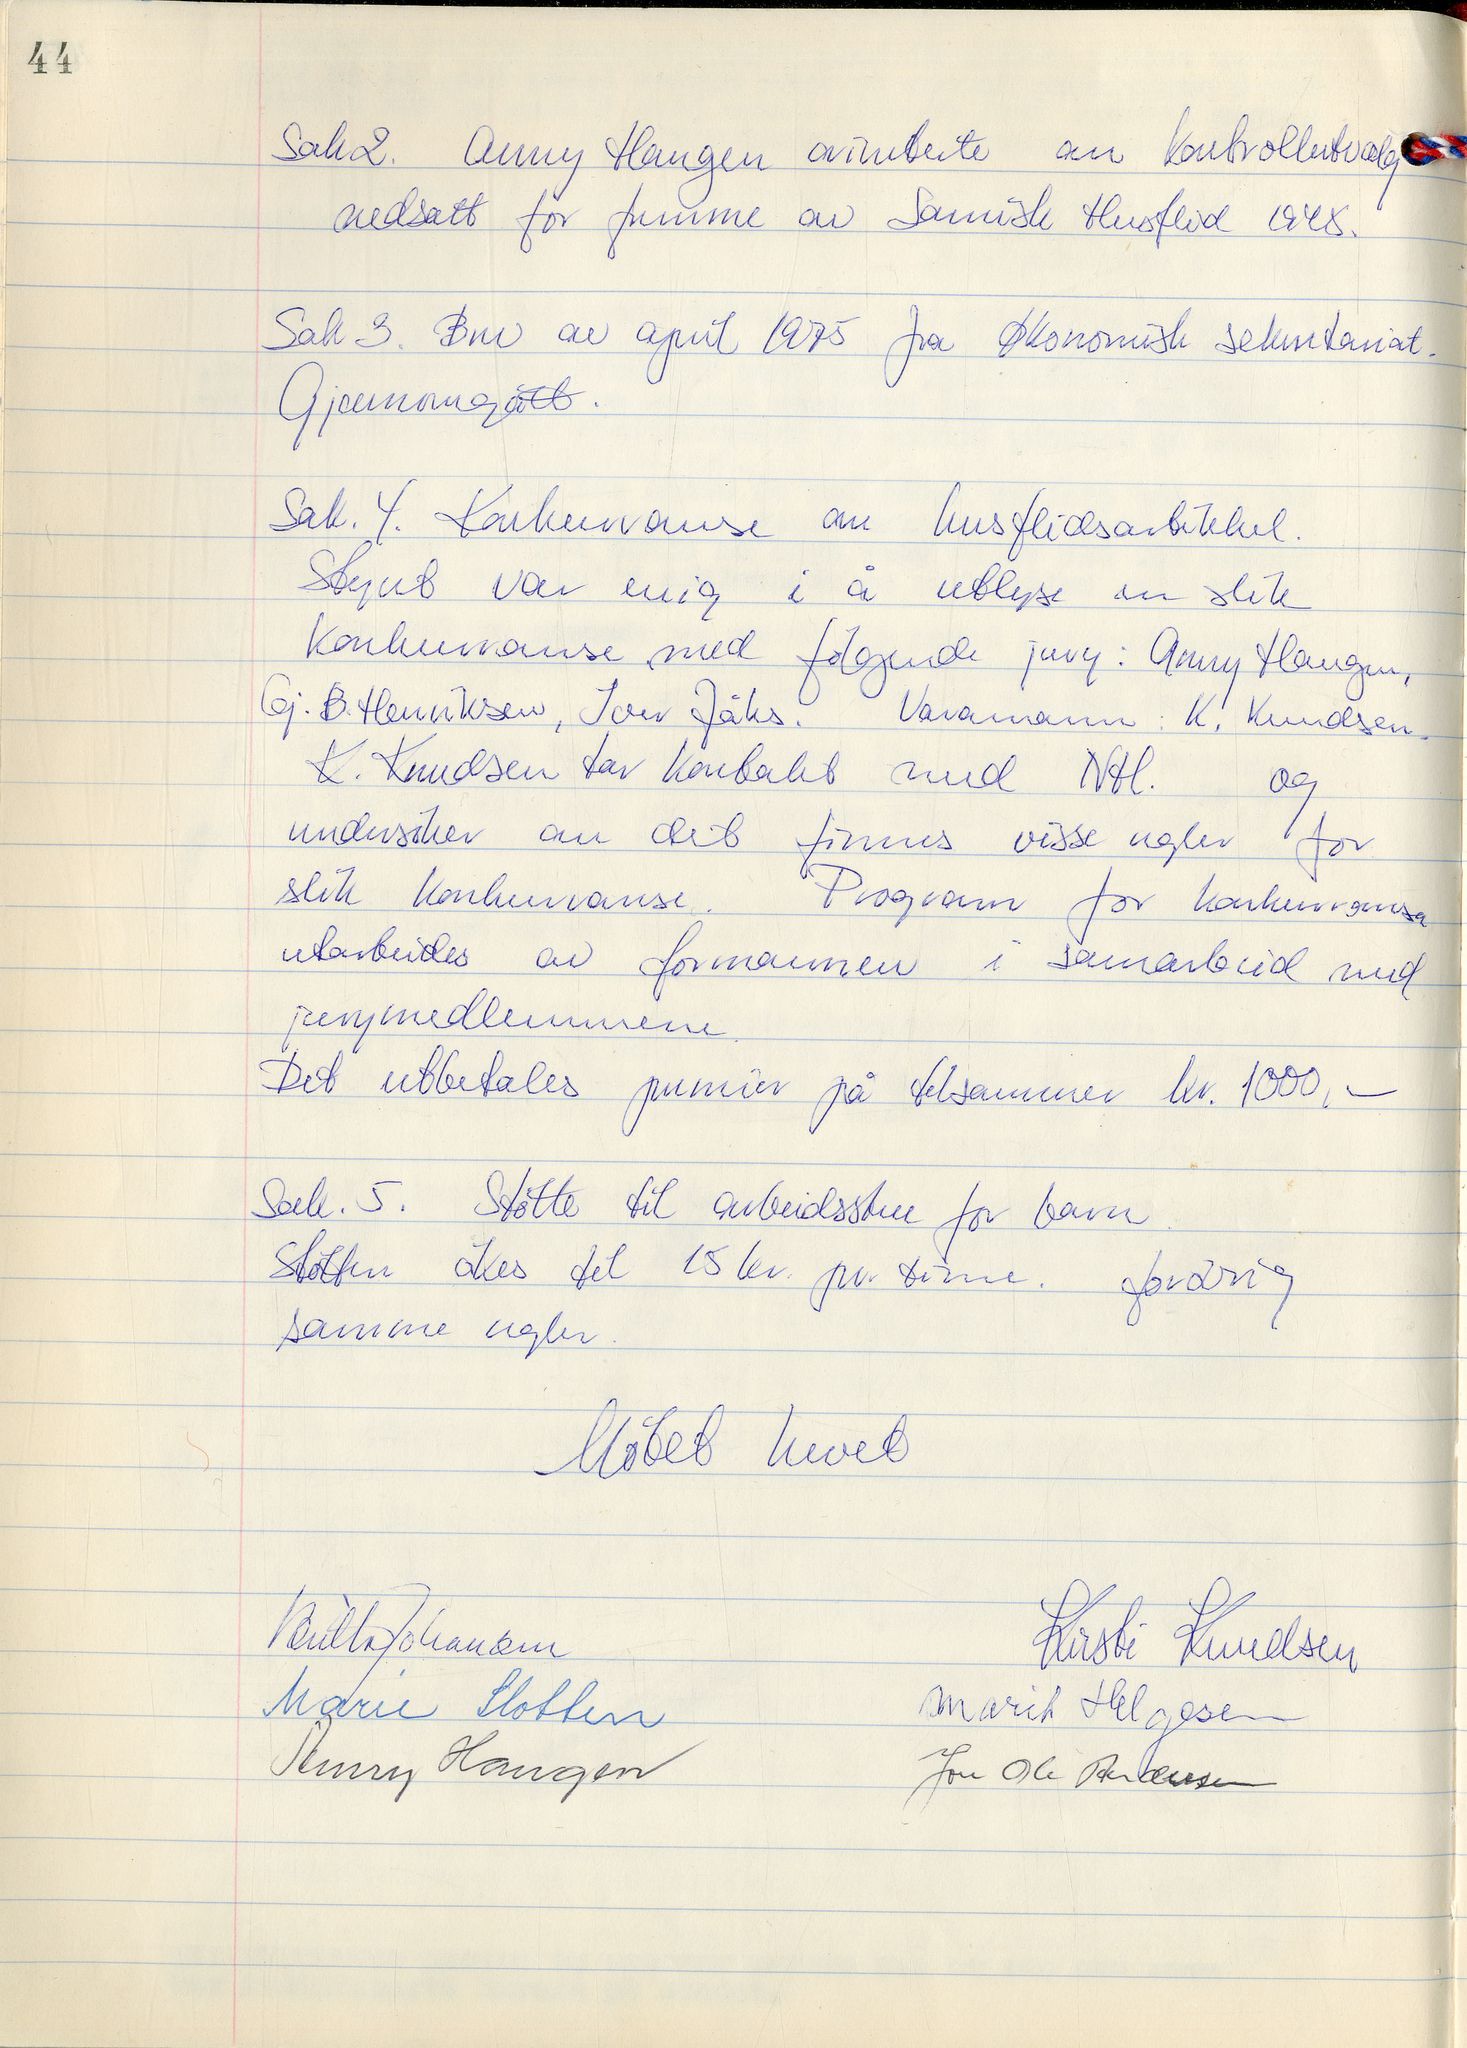 44
Sak 2. Anny Haugen orienterte om Kontrollutvalg
nedsatt for fremme av Samisk Husflid 1975.
Sak 3. Brev av april 1975 fra Økonomisk sekretariat.
Gjennomgått.
Sak. 4. Konkurranse om husflidsartikkel.
Styret var enig i å utlyse en slik
Konkurranse med følgende jury: Anny Haugen,
Gj. B. Henriksen, Iver Jåks. Varamann: K. Knudsen.
K. Knudsen tar kontakt med NHl. og
undersøker om det finnes visse regler for
slik konkurranse. Program for konkurransen
utarbeides av formannen i samarbeid med
jurymedlemmene.
Det utbetales premier på tilsammen kr. 1000,-
Sak. 5. Støtte til arbeidsstue for barn.
Støtten økes til 15 kr. per time. forøvrig
samme regler.
Møtet hevet
Johansen Kirsti Knudsen
Marie Slotten Marit Helgesen
Anny Haugen Jon Ole Andersen